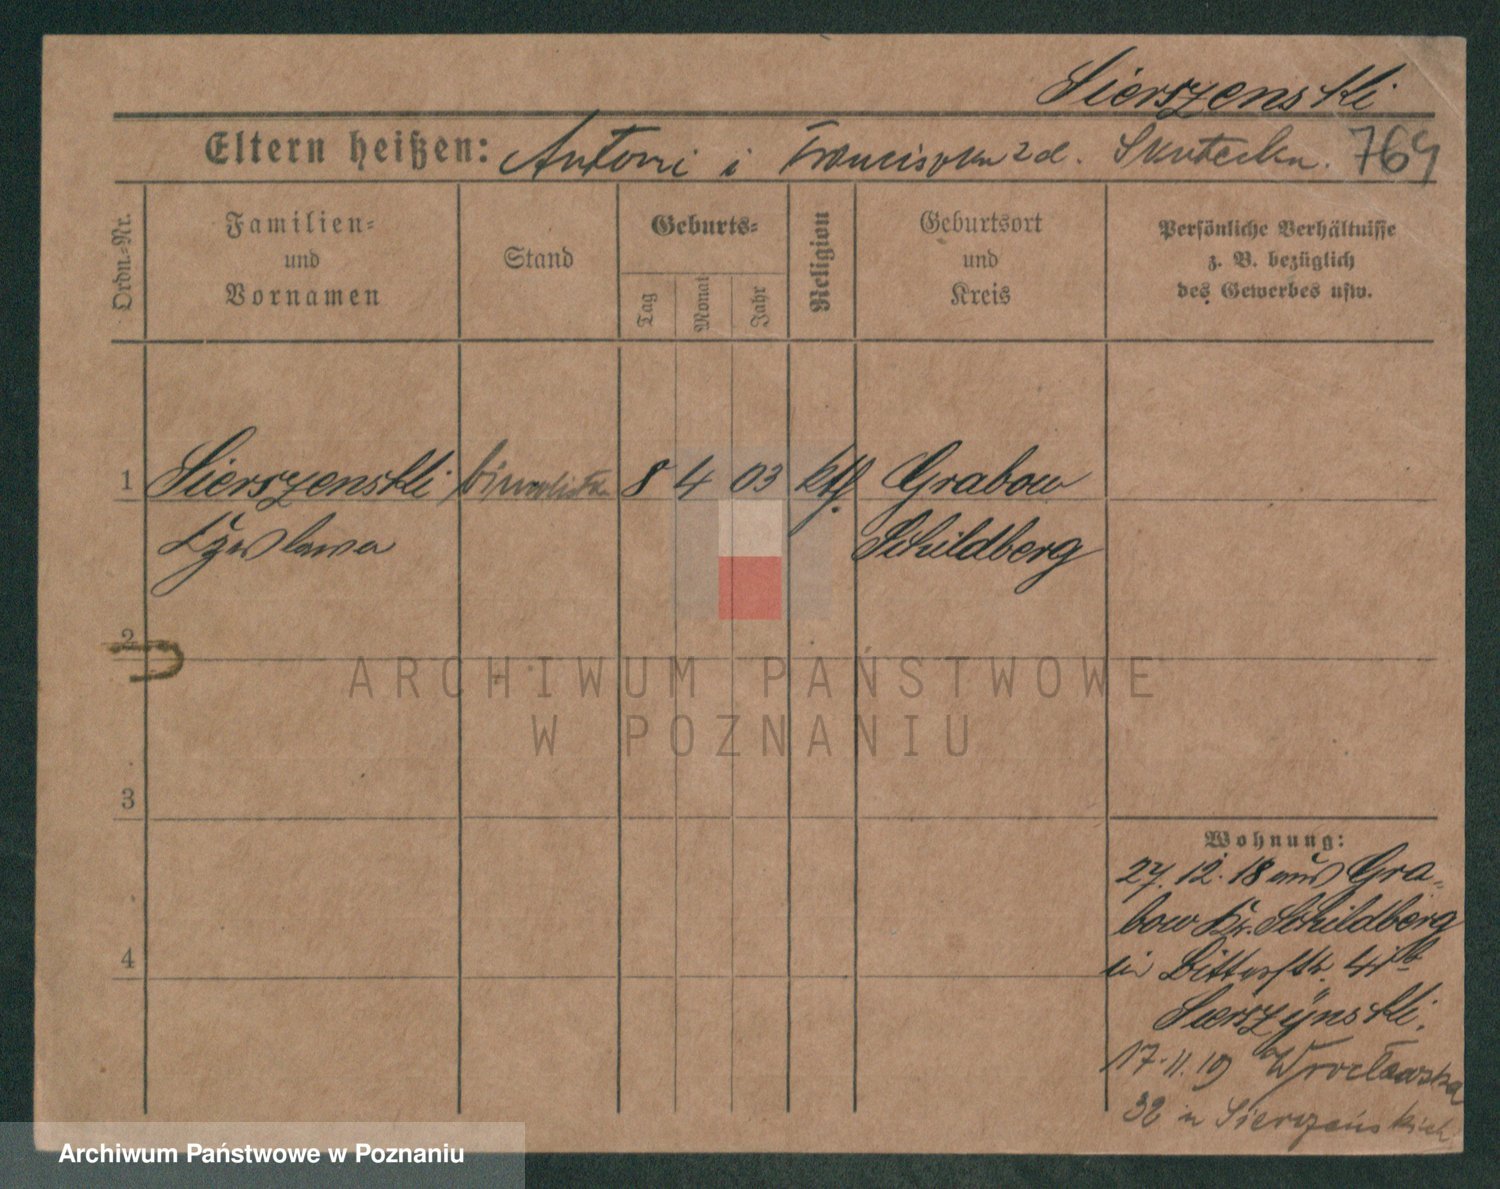 Sierszenski
Eltern heißen: Antoni i Franciszka z d. Skutecka. 764
Ordn.-Nr.
Familien-
und
Vornamen
Stand
Geburts-
Tag
Monat
Jahr
Religion
Geburtsort
und
Kreis
Persönliche Verhältnisse
z. B. bezüglich
des Gewerbes usw.
1 Sierszenski 8 4 03 kth. Grabow
Schildberg
2
3
4
Wohnung:
27. 12. 18 aus Gra-
bow Kr. Schildberg
in Ritterstr. 
Sierszÿnski.
17.11.19 Wrocławska
32 u Sierszeńskich
ARCHIWUM PAŃSTWOWE
W POZNANIU
Archiwum Państwowe w Poznaniu